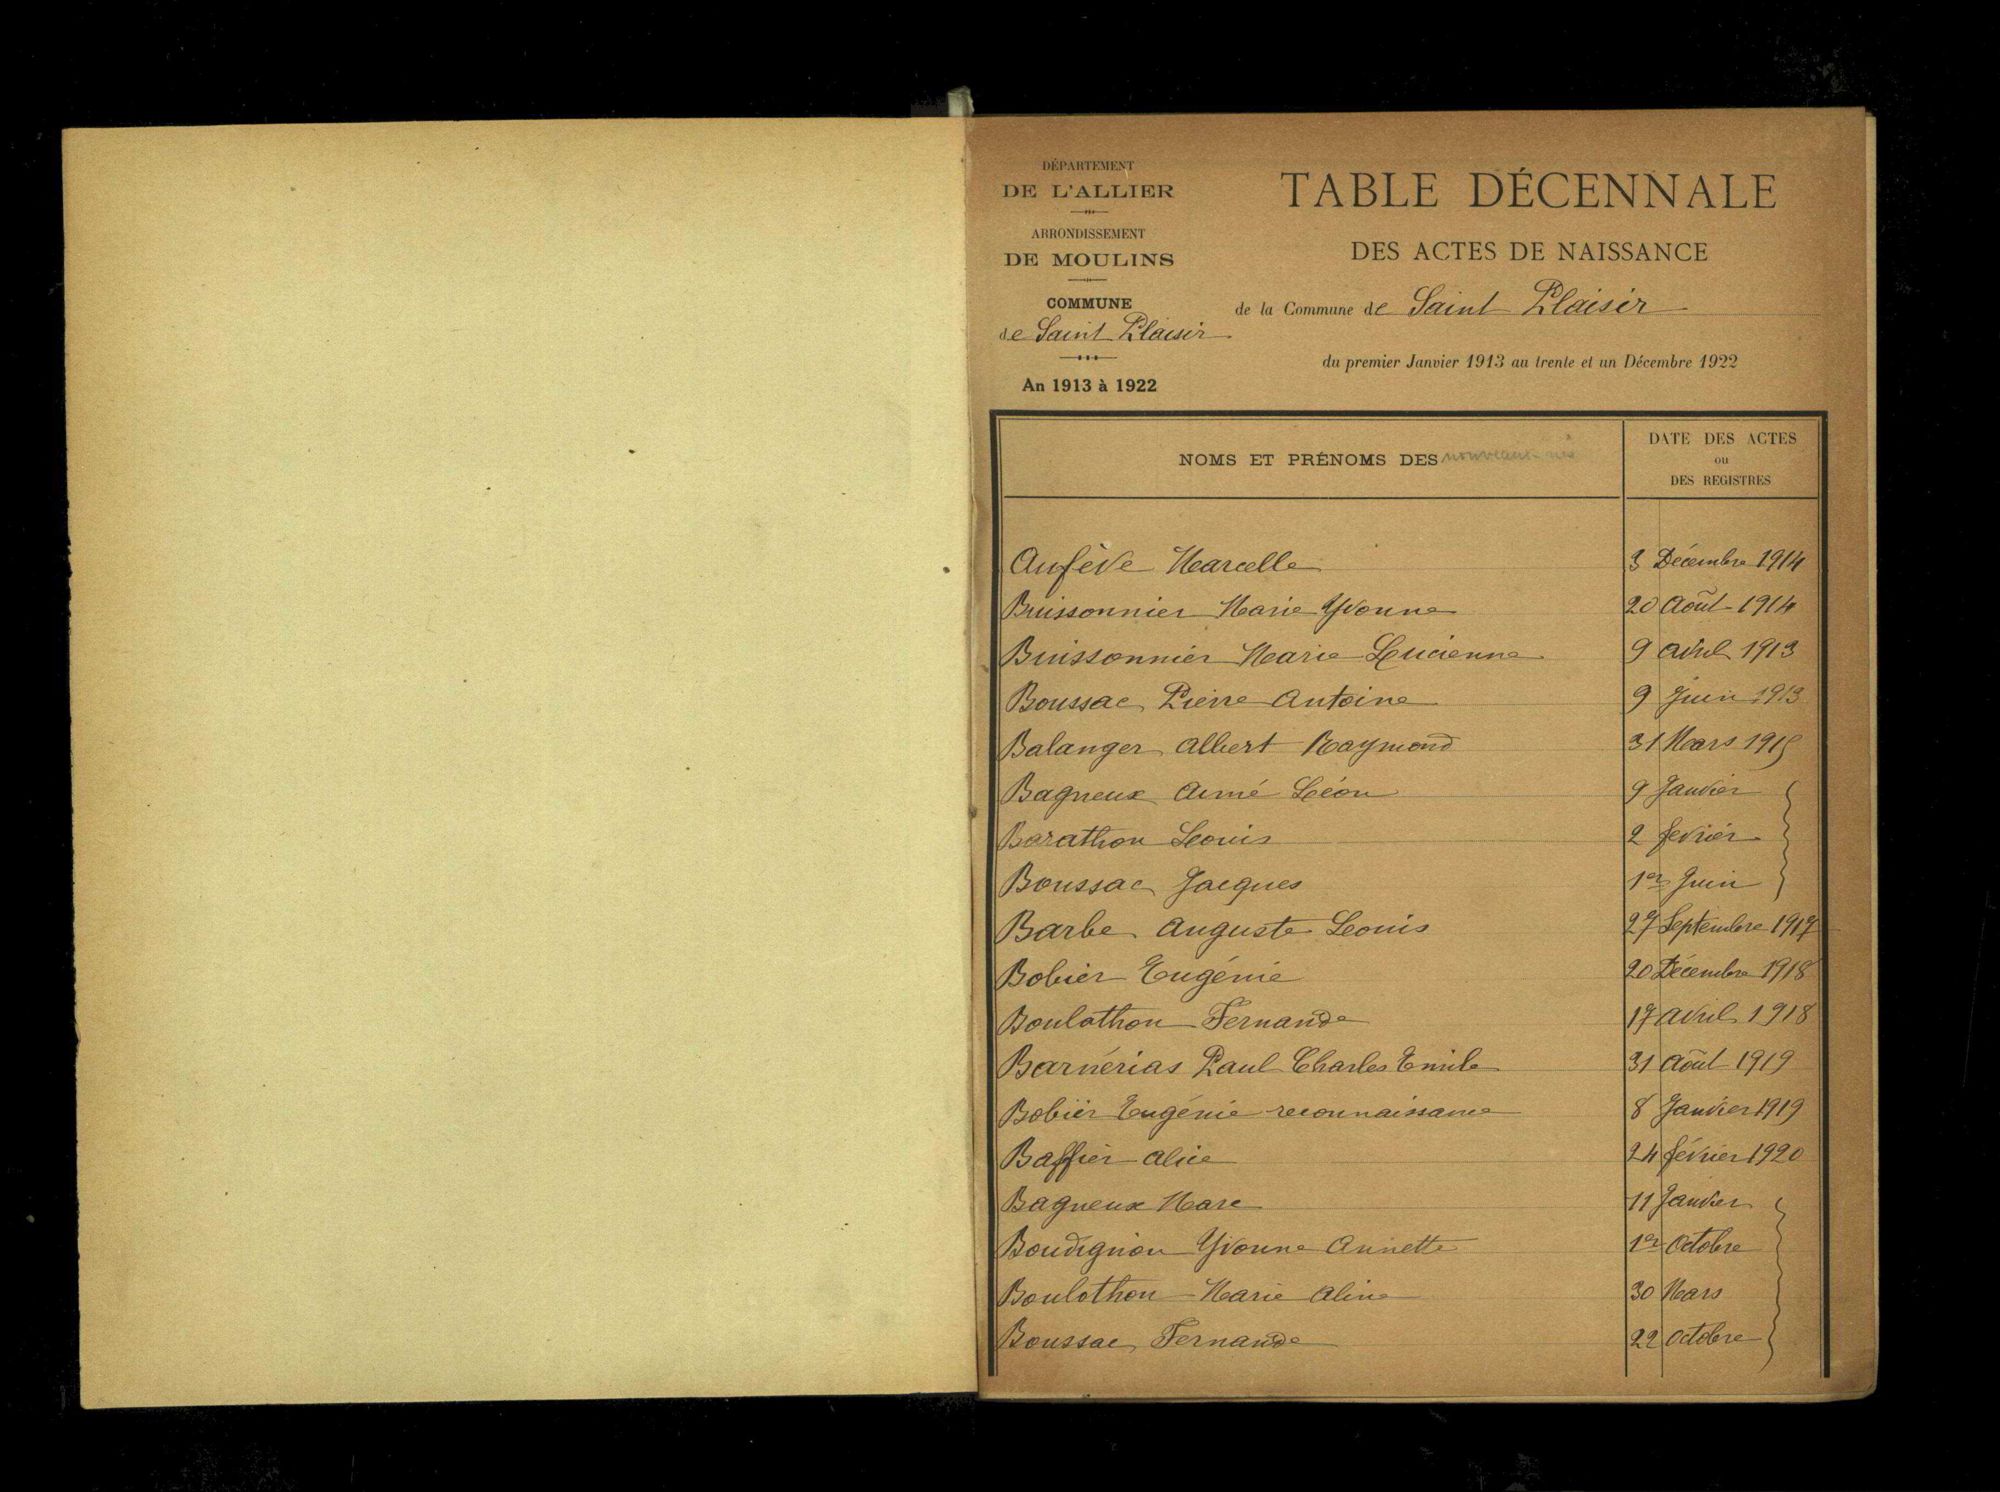 DÉPARTEMENT
DE L'ALLIER
ARRONDISSEMENT
DE MOULINS
COMMUNE
de Saint Plaisir
An 1913 à 1922
TABLE DÉCENNALE
DES ACTES DE NAISSANCE
de la Commune de Saint Plaisir
du premier Janvier 1913 au trente et un Décembre 1922
NOMS ET PRÉNOMS DES nouveaux-nés
DATE DES ACTES
ou
DES REGISTRES
Aufève Marcelle 3 Décembre 1914
Buissonnier Marie Yvonne 20 Août 1914
Buissonnier Marie Lucienne 9 Avril 1913
Boussac Pierre Antoine 9 Juin 1913
Balanger Albert Raymond 31 Mars 1915
Bagneux Aimé Léon 9 Janvier
Barathon Louis 2 février
Boussac Jacques 1er Juin
Barbe Auguste Louis 27 Septembre 1917
Bobier Eugénie 20 Décembre 1918
Boulathon Fernande 17 Avril 1918
Barnérias Paul Charles Emile 31 Août 1919
Bobier Eugénie reconnaissance 8 Janvier 1919
Baffier Alice 24 février 1920
Bagneux Marc 11 Janvier
Boudignon Yvonne Annette 1er Octobre
Boulothon Marie Aline 30 Mars
Boussac Fernande 22 Octobre